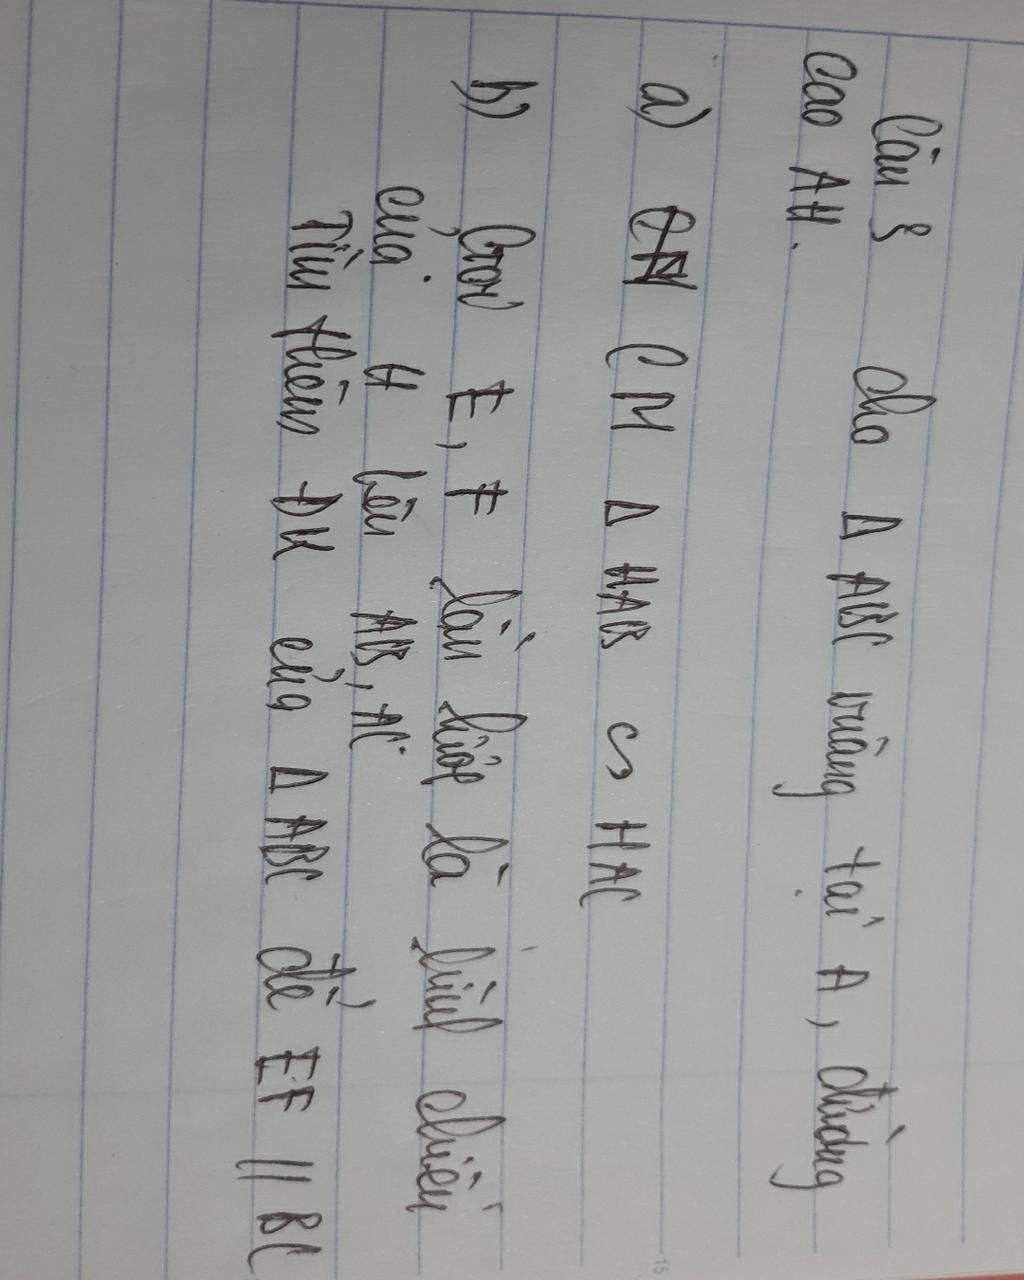 Câu 8 cho Δ ABC vuông tại A, đường
cao AH.
a) CM Δ HAB ∽ HAC
b) Gọi E, F lần lượt là hình chiếu
của H lên AB, AC.
Tìm thêm ĐK của Δ ABC để EF // BC
15